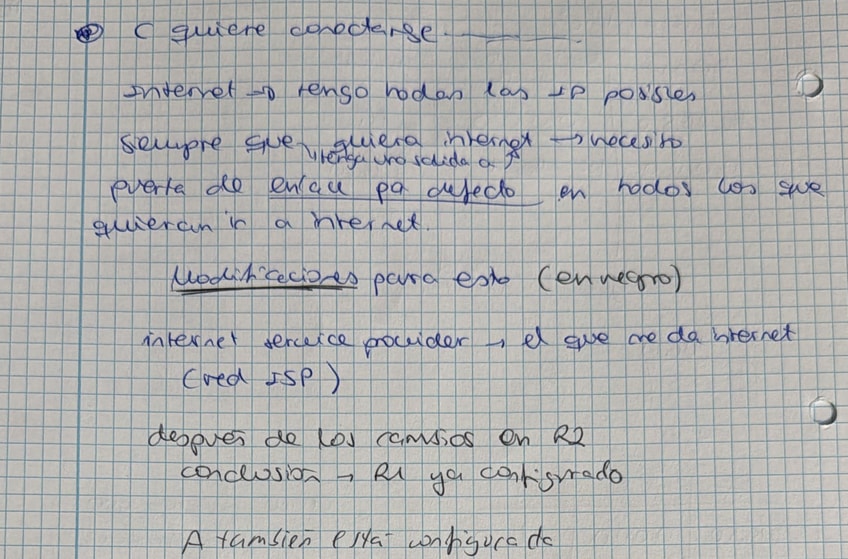 C quiere conectarse
Internet → tengo todas las IP posibles
siempre que quiera internet → necesito
tenga una salida a
puerta de enlace por defecto en todos los que
quieran ir a internet.
Modificaciones para esto (en negro)
internet service provider → el que me da internet
(red ISP)
después de los cambios en R2
conclusión → R1 ya configurado
A también está configurado